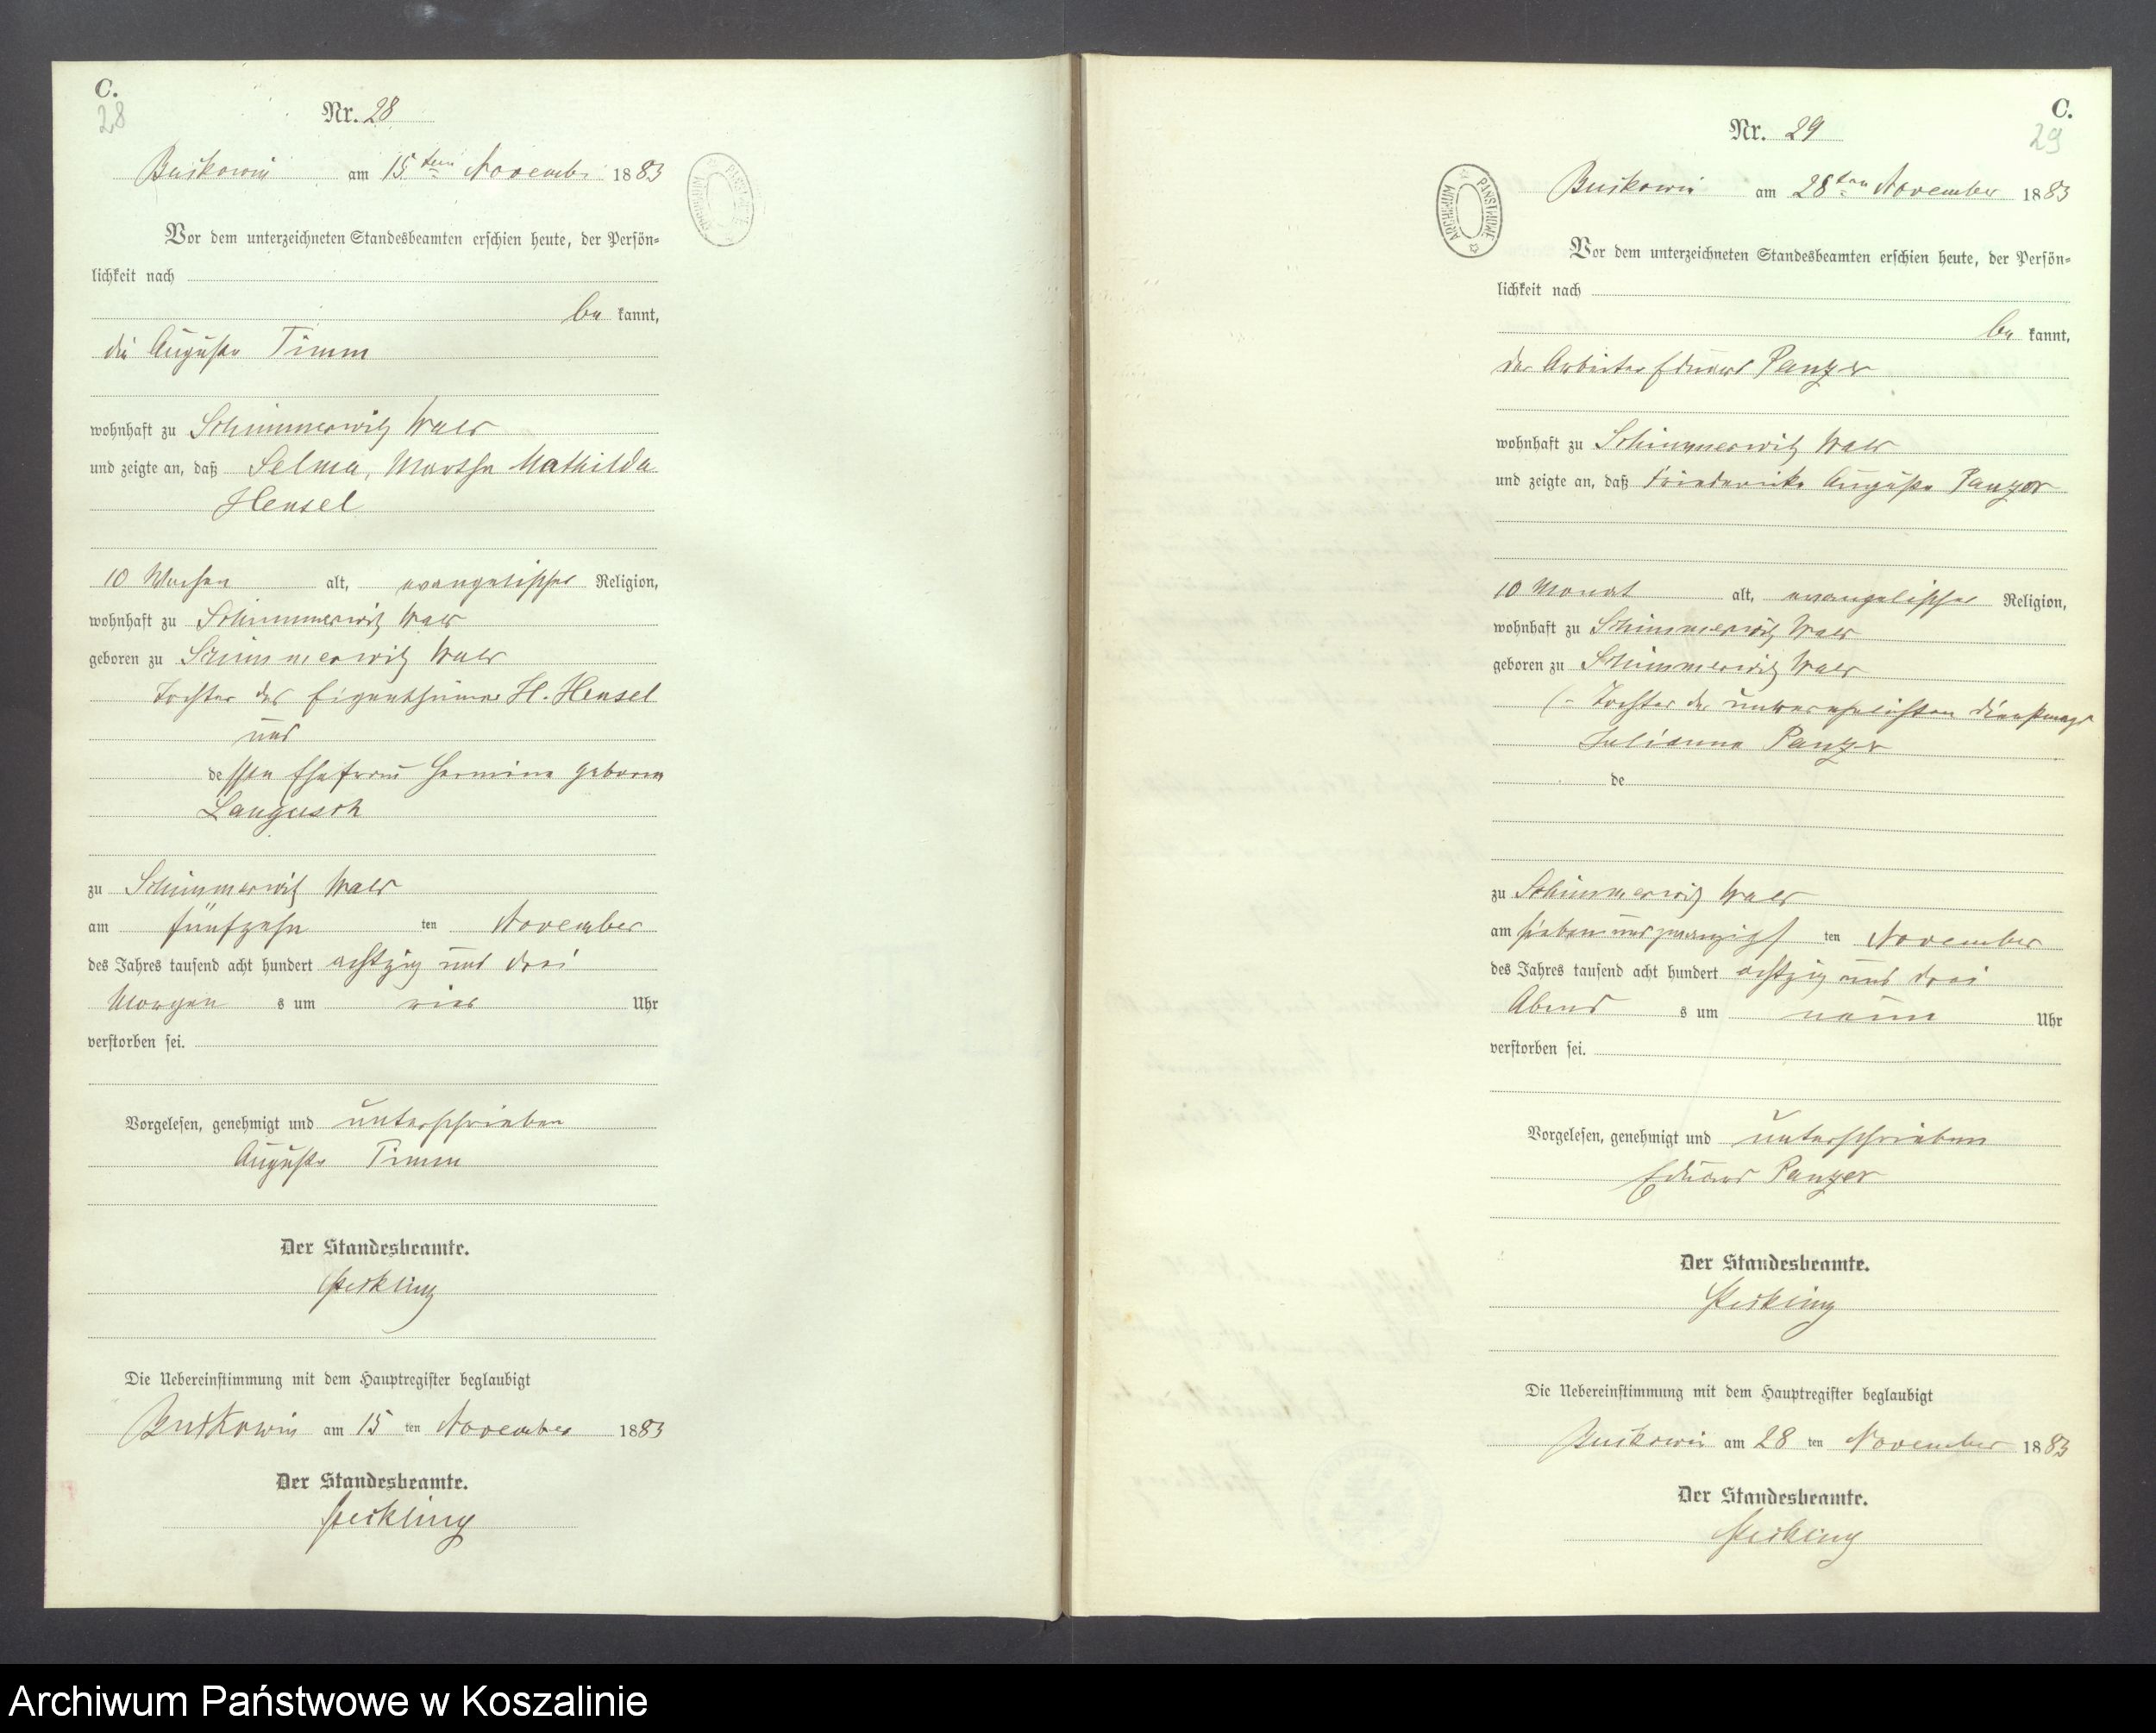 C.
28
Nr. 28
Buskowin am 15ten November 1883
Vor dem unterzeichneten Standesbeamten erschien heute, der Persön-
lichkeit nach
be kannt,
die Auguste Timm
wohnhaft zu Schimmerwitz Wald
und zeigte an, daß Selma, Martha Mathilda
Hensel
10 Wochen alt, evangelischer Religion,
wohnhaft zu Schimmerwitz Wald
geboren zu Schimmerwitz Wald
Tochter des Eigenthümer H. Hensel
und
dessen Ehefrau Hermine geboren
Langusch
zu Schimmerwitz Wald
am fünfzehn ten November
des Jahres tausend acht hundert achtzig und drei
Morgen s um vier Uhr
verstorben sei.
Vorgelesen, genehmigt und unterschrieben
Auguste Timm
Der Standesbeamte.
Die Uebereinstimmung mit dem Hauptregister beglaubigt
Buskowin am 15 ten November 1883
Der Standesbeamte.
C.
29
Nr. 29
ARCHIWUM PAŃSTWOWE
Buskowin am 28ten November 1883
Vor dem unterzeichneten Standesbeamten erschien heute, der Persön-
lichkeit nach
be kannt,
der Arbeiter Eduard Panzer
wohnhaft zu Schimmerwitz Wald
und zeigte an, daß Friederike Auguste Panzer
10 Monat alt, evangelischer Religion,
wohnhaft zu Schimmerwitz Wald
geboren zu Schimmerwitz Wald
(- Tochter der unverehelichten Dienstmagd
Julianna Panzer
de
zu Schimmerwitz Wald
am sieben und zwanzigst ten November
des Jahres tausend acht hundert achtzig und drei
Abend s um neun Uhr
verstorben sei.
Vorgelesen, genehmigt und unterschrieben
Eduard Panzer
Der Standesbeamte.
Die Uebereinstimmung mit dem Hauptregister beglaubigt
Buskowin am 28 ten November 1883
Der Standesbeamte.
Archiwum Państwowe w Koszalinie